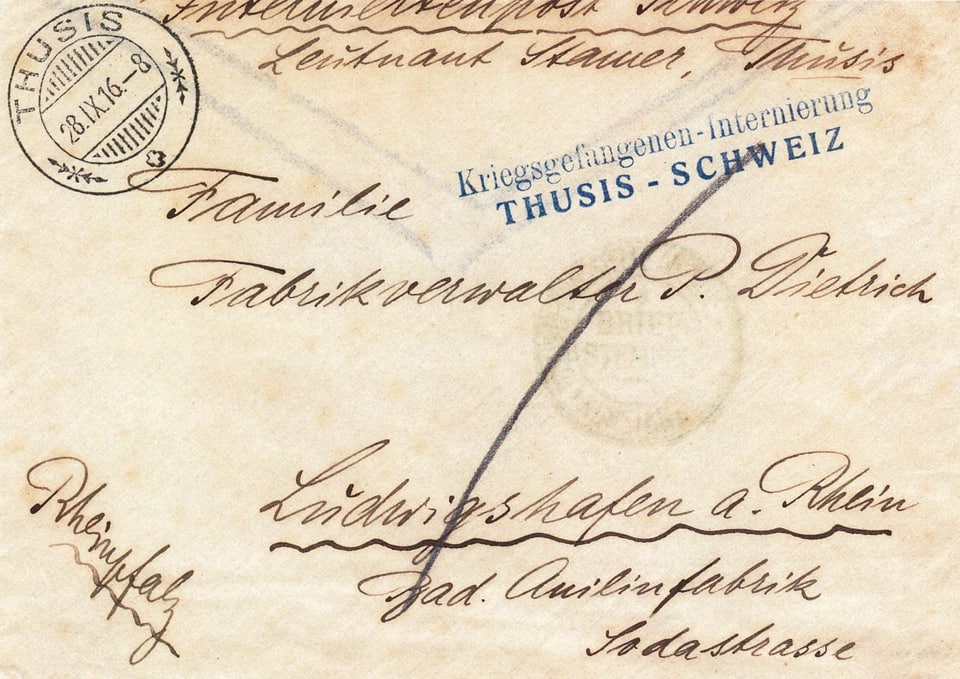 Interniertenpost Schweiz
Leutnant Stamer, Thusis
THUSIS
28.IX.16.-8
Kriegsgefangenen-Internierung
THUSIS - SCHWEIZ
Familie
Fabrikverwalter P. Dietrich
Ludwigshafen a. Rhein
Rheinpfalz
Bad. Anilinfabrik
Sodastrasse